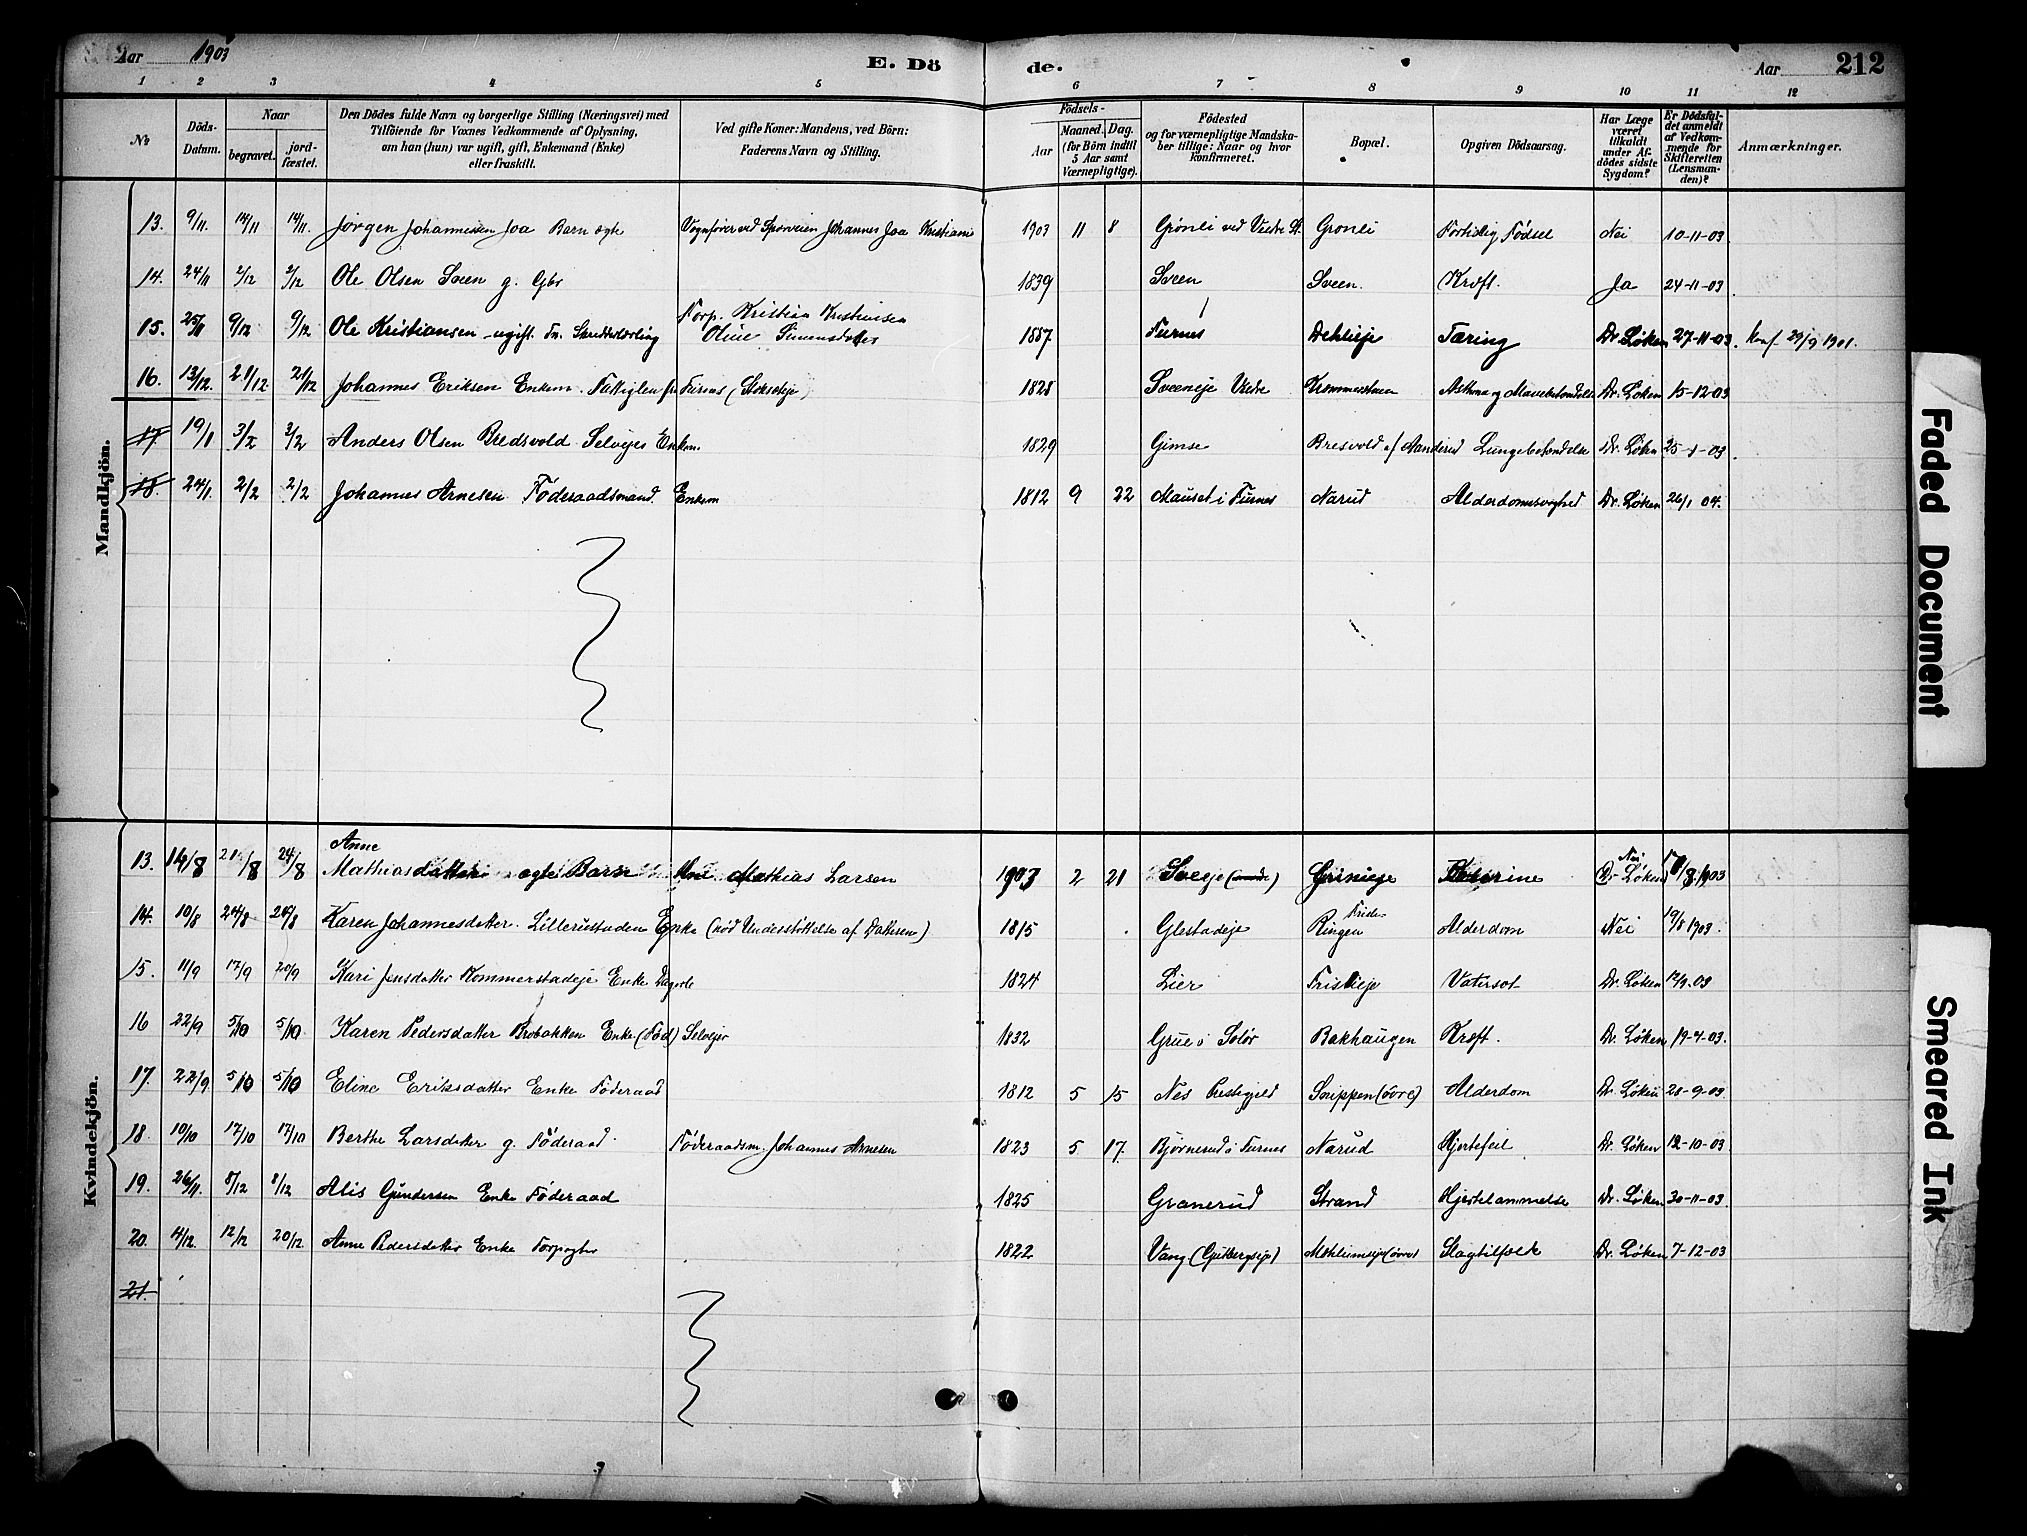 Aar 1903 E. Dö de. Aar 212
1 2 3 4 5 6 7 8 9 10 11 12
No Döds-Datum. Naar begravet. jordfæstet. Den Dödes fulde Navn og borgerlige Stilling (Næringsvei) med Tilföiende for Voxnes Vedkommende af Oplysning, om han (hun) var ugift, gift, Enkemand (Enke) eller fraskilt. Ved gifte Koner: Mandens, ved Börn: Faderens Navn og Stilling. Födsels- Aar Maaned. Dag. (for Börn indtil 5 Aar samt Værnepligtige). Födested og for værnepligtige Mandskaber tillige: Naar og hvor konfirmeret. Bopæl. Opgiven Dödsaarsag. Har Læge været tilkaldt under Afdödes sidste Sygdom? Er Dödsfaldet anmeldt af Vedkommende for Skifteretten (Lensmanden)? Anmærkninger.
Mandkjön.
13. 9/11. 14/11 14/11. Jørgen Johannessen Joa Barn ægte Vognfører ved Sporveien Johannes Joa Kristiania 1903 11 8 Grönli ved Veldre St. Gronli Fortidig Födsel Nei 10-11-03.
14. 24/11 2/12 2/12 Ole Olsen Sveen g. Gbr 1839 Sveen Sveen. Kræft. Ja 24-11-03.
15. 25/11 9/12 9/12 Ole Kristiansen ugift. Skrædderlærling Forp. Kristian Kristiansen
Oline Simensdatter 1887 Furnes Dehlieje Tæring Dr Løken 27-11-03. Konf. 29/9 1901.
16. 13/12. 21/12 21/12 Johannes Eriksen Enkem. Fattiglem fra Furnes 1828 Sveeneje Veldre Asthma og Mavebetændelse Dr. Løken 15-12-03
17. 19/1 3/2 3/2 Anders Olsen Bredsvold Selvejer Enkem 1829 Gimse Bresvold af Aanderud Lungebetændelse Dr. Løken 25-1-03.
18. 24/1. 2/2 2/2 Johannes Arnesen Föderaadsmand. Enkem 1812 9 22 Mauset i Furnes Narud Alderdomssvaghed Dr. Løken 26/1 04.
Kvindekjön.
13. 14/8 21/8 24/8 Anne
Mathiasdatter ægte Barn Mathias Larsen 1903 2 21 Sveje Nei
Dr Løken 1903
14. 10/8 24/8 24/8 Karen Johannesdatter Lillerustaden Enke (nød Understöttelse af Datteren) 1815 Glestadeje Ringen Alderdom Nei 19/8 1903.
15. 11/9 17/9 20/9 Kari Jensdatter Kommerstadeje Enke 1824 Lier Friskeje Vatersot Dr. Løken 17/9 03
16 22/9 5/10 5/10 Karen Pedersdatter Brobakken Enke (Föd) Selvejer 1832 Grue i Solör Bakhaugen Kræft. Dr. Løken 19-4-03.
17. 22/9. 5/10 5/10 Eline Eriksdatter Enke Föderaad 1812 5 15 Nes Prestegjeld Snippen (övre) Alderdom Dr. Løken 28-9-03
18. 10/10 17/10 17/10 Berthe Larsdatter g. Föderaad Föderaadsm. Johannes Arnesen 1823 5 17. Bjørnerud i Furnes Narud Hjertefeil Dr. Løken 12-10-03
19. 26/11. 8/12 8/12 Alis Gundersen Enke Föderaad 1825 Granerud Strand Hjertelammelse Dr. Løken 30-11-03
20. 4/12. 12/12 20/12 Anne Pedersdatter Enke 1822 Vang Slagtilfælde Dr. Løken 7-12-03
21.
Faded Document
Smeared Ink